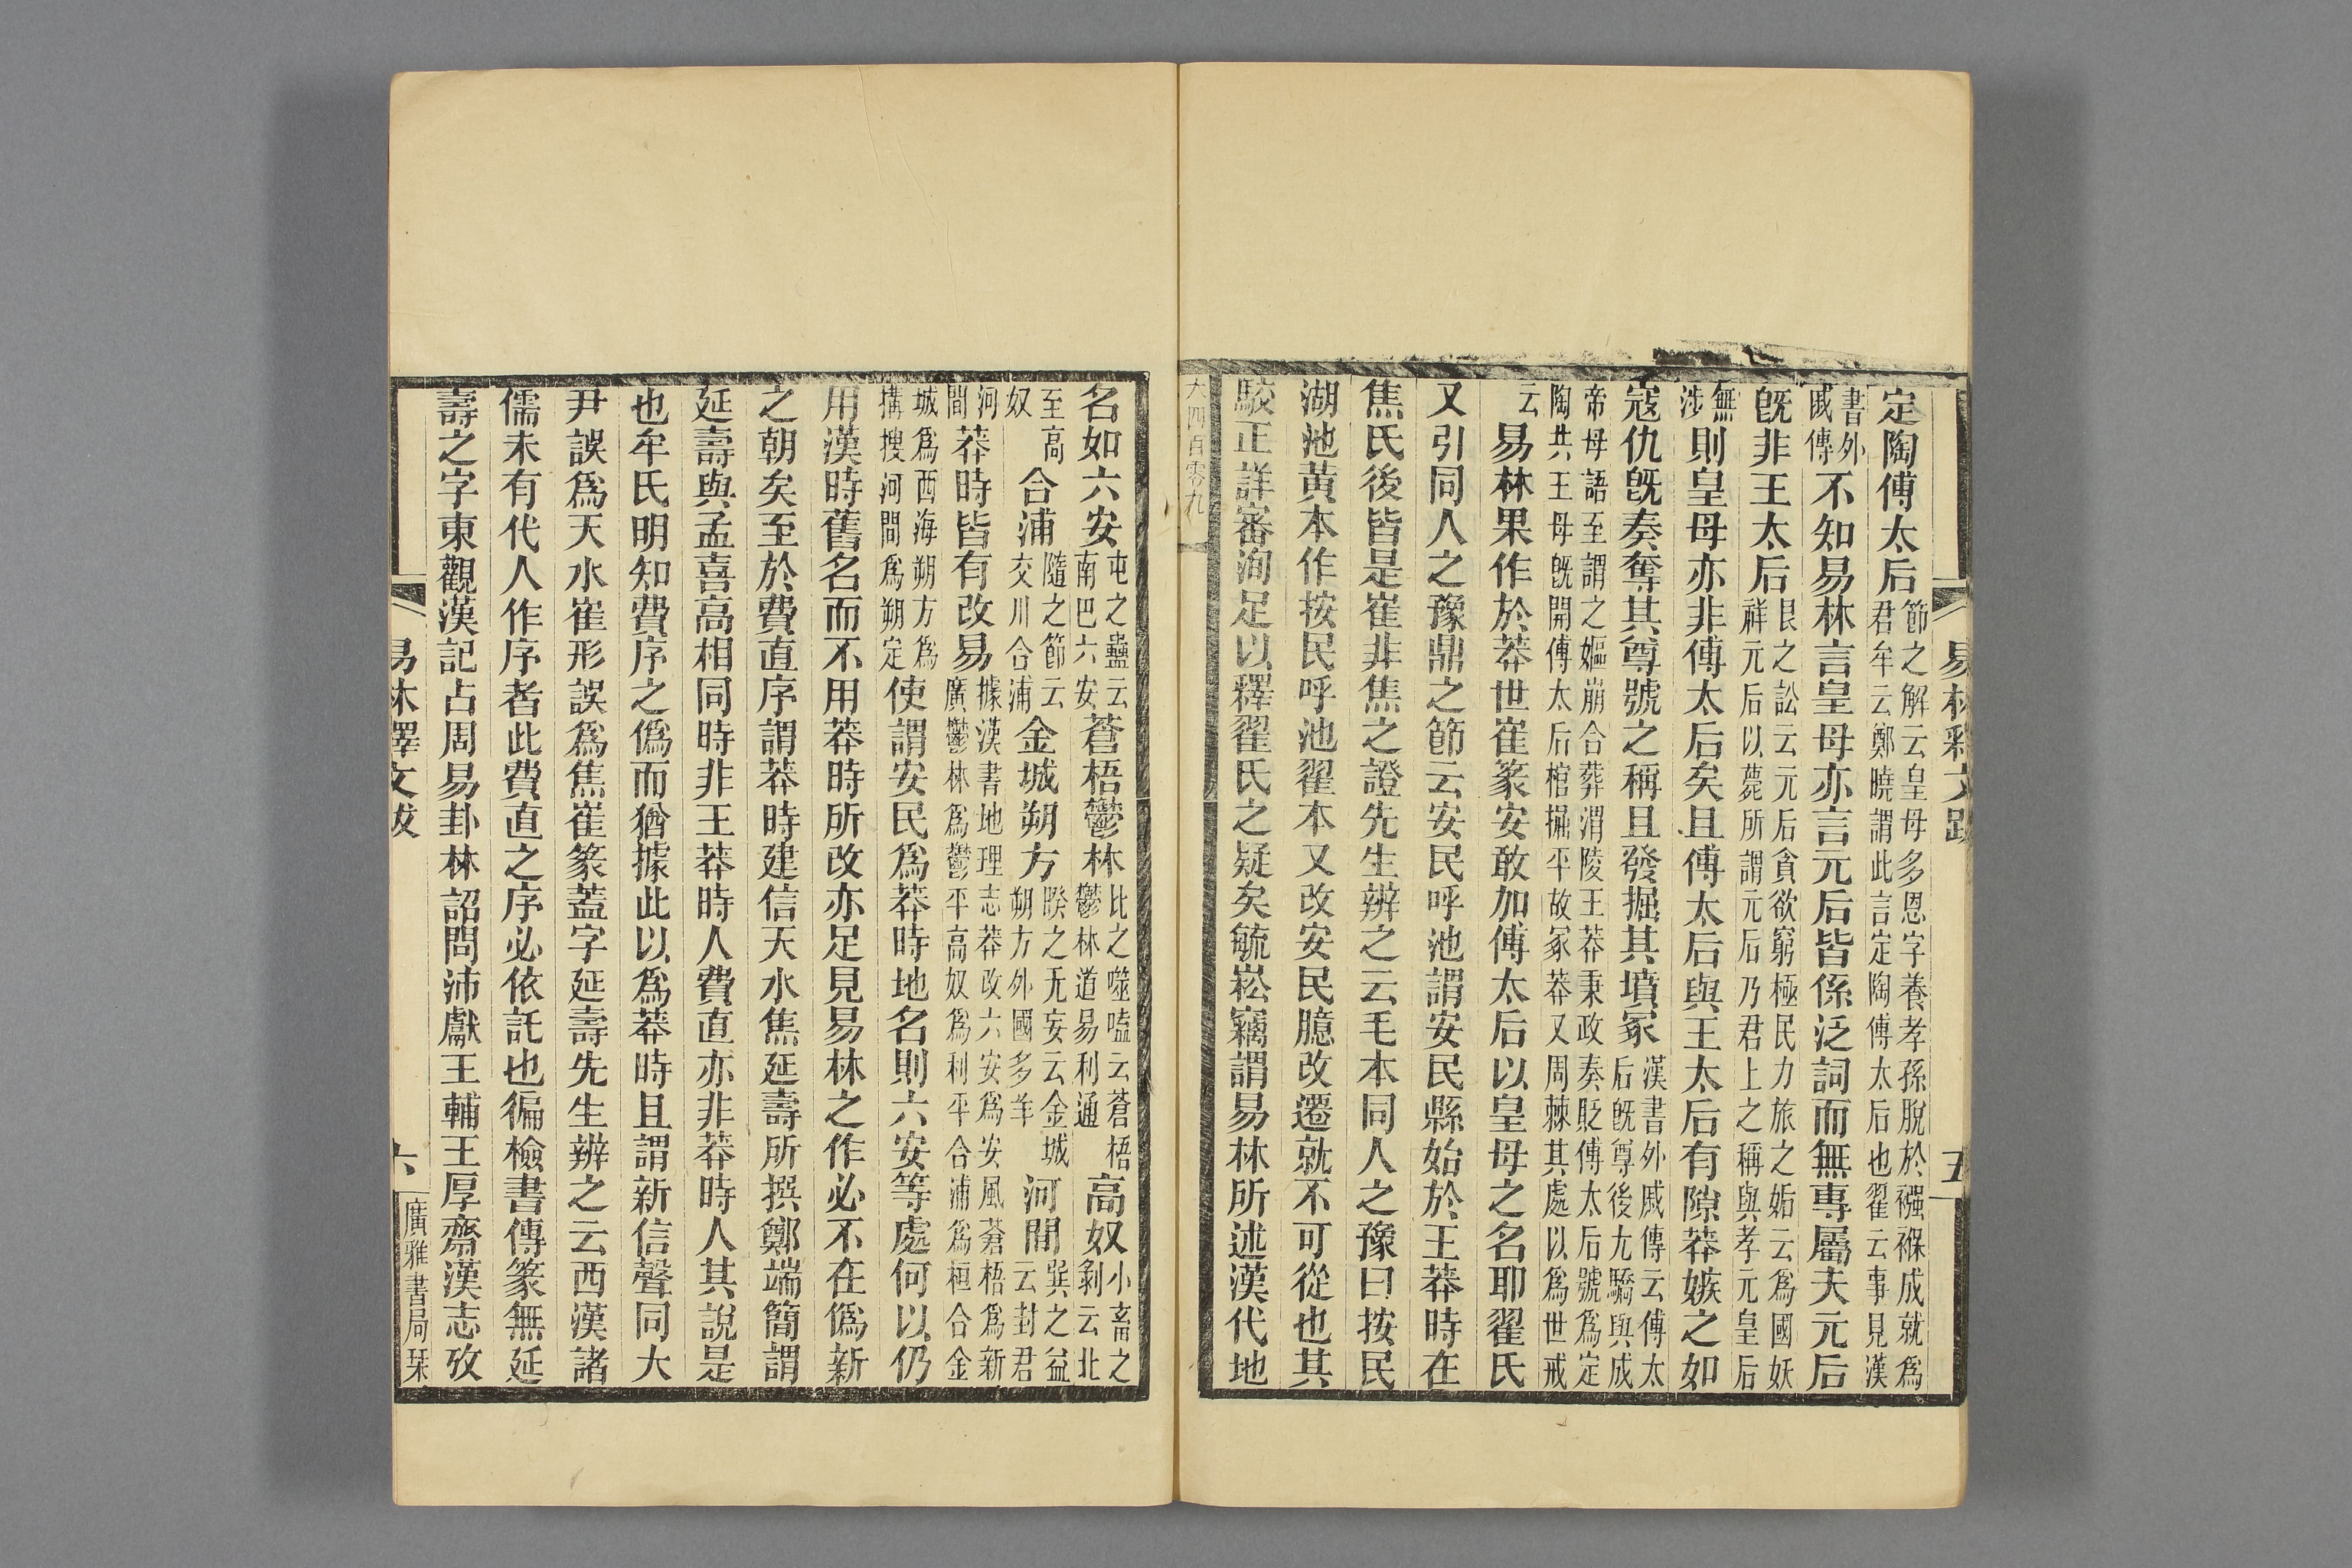 易林釋文跋
五
定陶傅太后節之解云皇母多恩字養孝孫脫於襁褓成就爲君牟云鄭曉謂此言定陶傅太后也翟云事見漢
書外戚傳不知易林言皇母亦言元后皆係泛詞而無專屬夫元后
旣非王太后艮之訟云元后貪欲窮極民力旅之姤云爲國妖祥元后以薨所謂元后乃君上之稱與孝元皇后
無涉則皇母亦非傅太后矣且傅太后與王太后有隙莽嫉之如
寇仇旣奏奪其尊號之稱且發掘其墳冢漢書外戚傳云傅太后旣尊後尢驕與成
帝母語至謂之嫗崩合葬渭陵王莽秉政奏貶傅太后號爲定陶共王母旣開傅太后棺掘平故冢莽又周棘其處以爲世戒
云易林果作於莽世崔篆安敢加傅太后以皇母之名耶翟氏
又引同人之豫鼎之節云安民呼池謂安民縣始於王莽時在
焦氏後皆是崔非焦之證先生辨之云毛本同人之豫曰按民
湖池黃本作按民呼池翟本又改安民臆改遷就不可從也其
駮正詳審洵足以釋翟氏之疑矣毓崧竊謂易林所述漢代地
大四百零九
名如六安屯之蠱云南巴六安蒼梧鬱林比之噬嗑云蒼梧鬱林道易利通高奴小畜之剝云北
至高奴合浦隨之節云交川合浦金城朔方睽之无妄云金城朔方外國多羊河間巽之益云封君
河間莽時皆有改易據漢書地理志莽改六安爲安風蒼梧爲新廣鬱林爲鬱平高奴爲利平合浦爲桓合金
城爲西海朔方爲搆搜河間爲朔定使謂安民爲莽時地名則六安等處何以仍
用漢時舊名而不用莽時所改亦足見易林之作必不在僞新
之朝矣至於費直序謂莽時建信天水焦延壽所撰鄭端簡謂
延壽與孟喜高相同時非王莽時人費直亦非莽時人其說是
也牟氏明知費序之僞而猶據此以爲莽時且謂新信聲同大
尹誤爲天水崔形誤爲焦崔篆蓋字延壽先生辨之云西漢諸
儒未有代人作序者此費直之序必依託也徧檢書傳篆無延
壽之字東觀漢記占周易卦林詔問沛獻王輔王厚齋漢志攷
易林釋文跋
六
廣雅書局栞